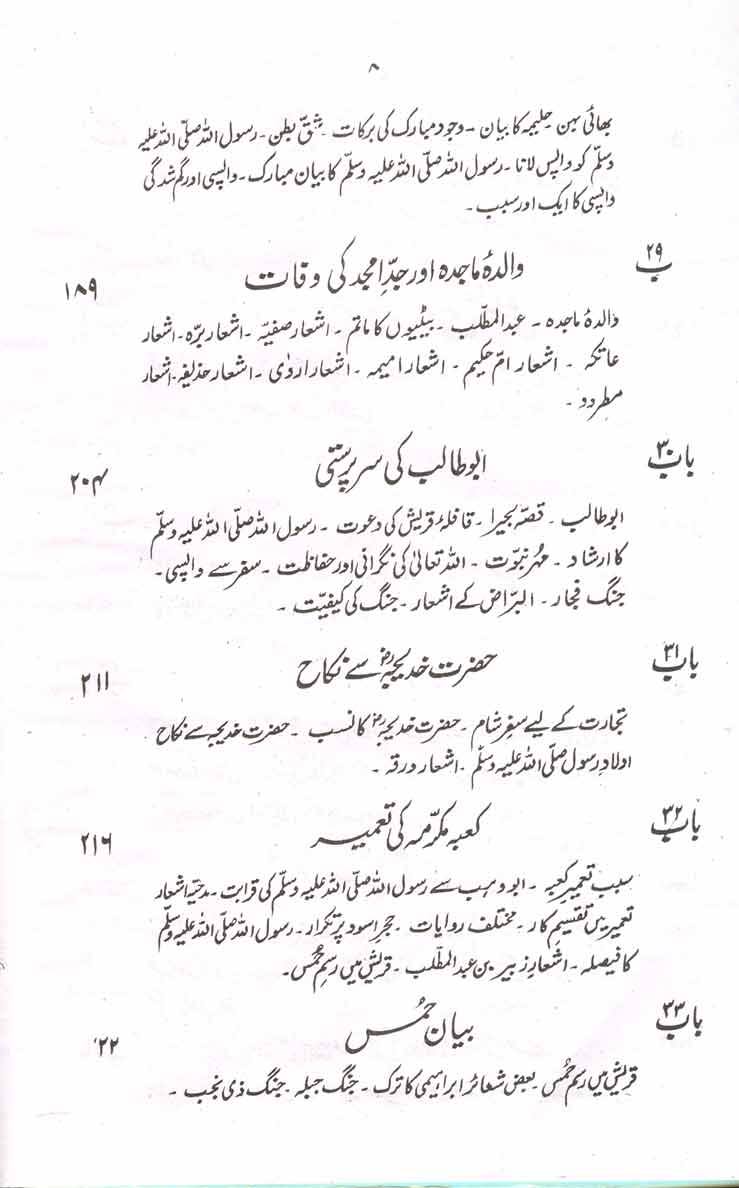 ۸
بھائی بہن حلیمہ کا بیان ۔ وجود مبارک کی برکات ۔ شقّ بطن ۔ رسول اللہ صلّی اللہ علیہ
وسلّم کو واپس لانا ۔ رسول اللہ صلّی اللہ علیہ وسلّم کا بیان مبارک ۔ واپسی اور گم شدگی
واپسی کا ایک اور سبب ۔
ب ۲۹ والدۂ ماجدہ اور جدِّ امجد کی وفات ۱۸۹
والدۂ ماجدہ ۔ عبدالمطّلب ۔ بیٹیوں کا ماتم ۔ اشعار صفیّہ ۔ اشعار برّہ ۔ اشعار
عاتکہ ۔ اشعار امّ حکیم ۔ اشعار امیمہ ۔ اشعار اروٰی ۔ اشعار حذیفہ ۔ اشعار
مطرود ۔
باب ۳۰ ابوطالب کی سرپرستی ۲۰۴
ابوطالب ۔ قصّہ بحیرا ۔ قافلۂ قریش کی دعوت ۔ رسول اللہ صلّی اللہ علیہ وسلّم
کا ارشاد ۔ مہر نبوّت ۔ اللہ تعالیٰ کی نگرانی اور حفاظت ۔ سفر سے واپسی ۔
جنگ فجار ۔ البرّاض کے اشعار ۔ جنگ کی کیفیّت ۔
باب ۳۱ حضرت خدیجہؓ سے نکاح ۲۱۱
تجارت کے لیے سفرِ شام ۔ حضرت خدیجہؓ کا نسب ۔ حضرت خدیجہ سے نکاح
اولادِ رسول صلّی اللہ علیہ وسلّم ۔ اشعار ورقہ ۔
باب ۳۲ کعبہ مکرّمہ کی تعمیر ۲۱۶
سبب تعمیرِ کعبہ ۔ ابو وہب سے رسول اللہ صلّی اللہ علیہ وسلّم کی قرابت ۔ مدحیّہ اشعار
تعمیر میں تقسیمِ کار ۔ مختلف روایات ۔ حجرِ اسود پر تکرار ۔ رسول اللہ صلّی اللہ علیہ وسلّم
کا فیصلہ ۔ اشعارِ زبیر بن عبدالمطّلب ۔ قریش میں رسمِ حُمس ۔
باب ۳۳ بیان حُمس ۲۲
قریش میں رسم حُمس ۔ بعض شعائر ابراہیمی کا ترک ۔ جنگ جبلہ ۔ جنگ ذی نجب ۔